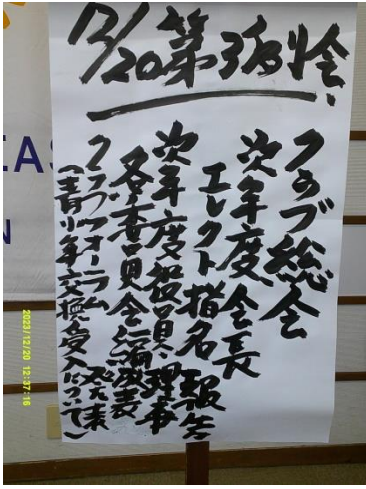 12/20第3例会
クラブ総会
次年度会長
エレクト指名報告
次年度役員、理事
各委員会編成表
クラブフォーラム 発表
(青少年交換受入について)
EAS
N
2023/12/20 12:37:16